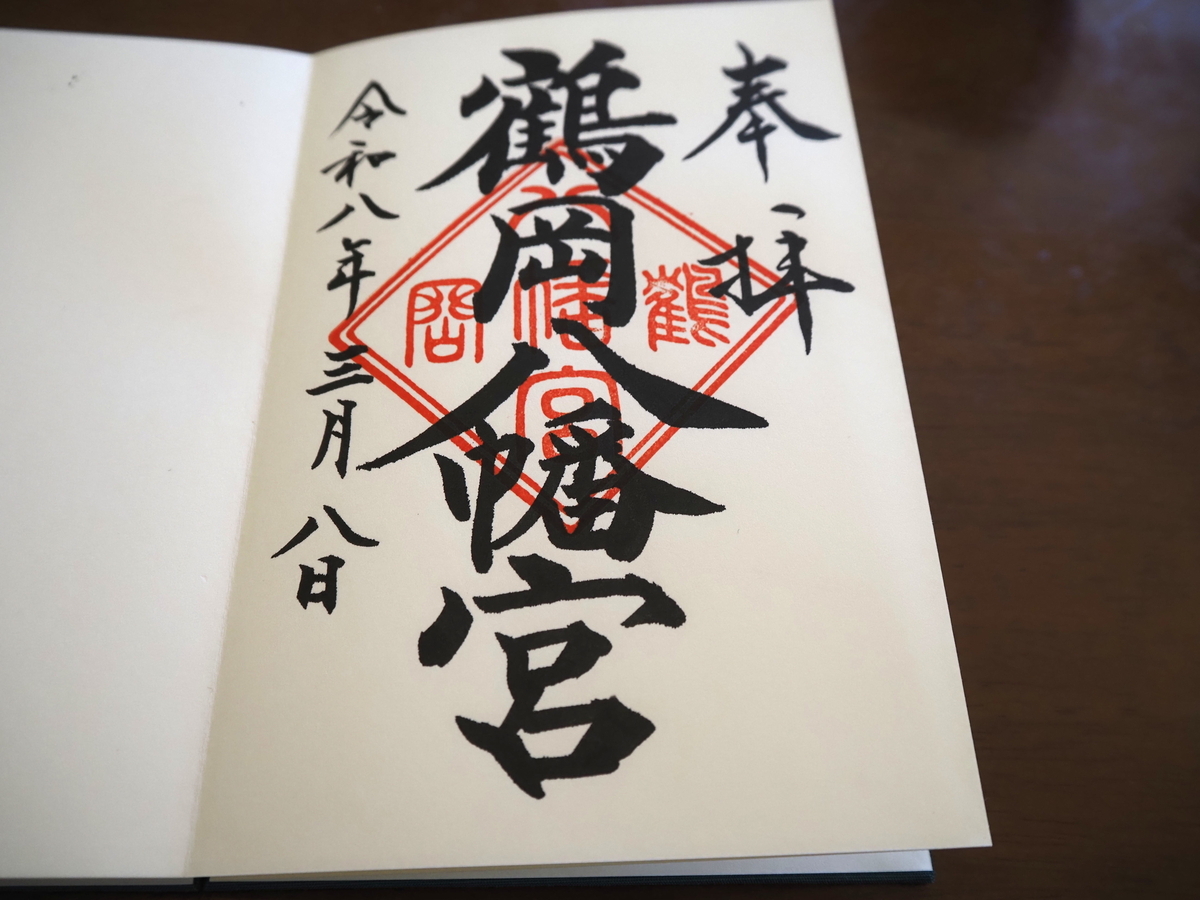 奉拝
鶴岡八幡宮
令和八年三月八日
鶴
八幡宮
岡